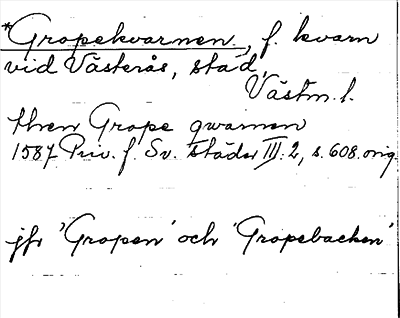 *Gropekvarnen, f. kvarn
vid Västerås, stad,
Västm. l.
thren Grope qwarnen
1587 Priv. f. Sv. städer III:2, s. 608. orig.
jfr 'Gropen' och 'Gropebacken'